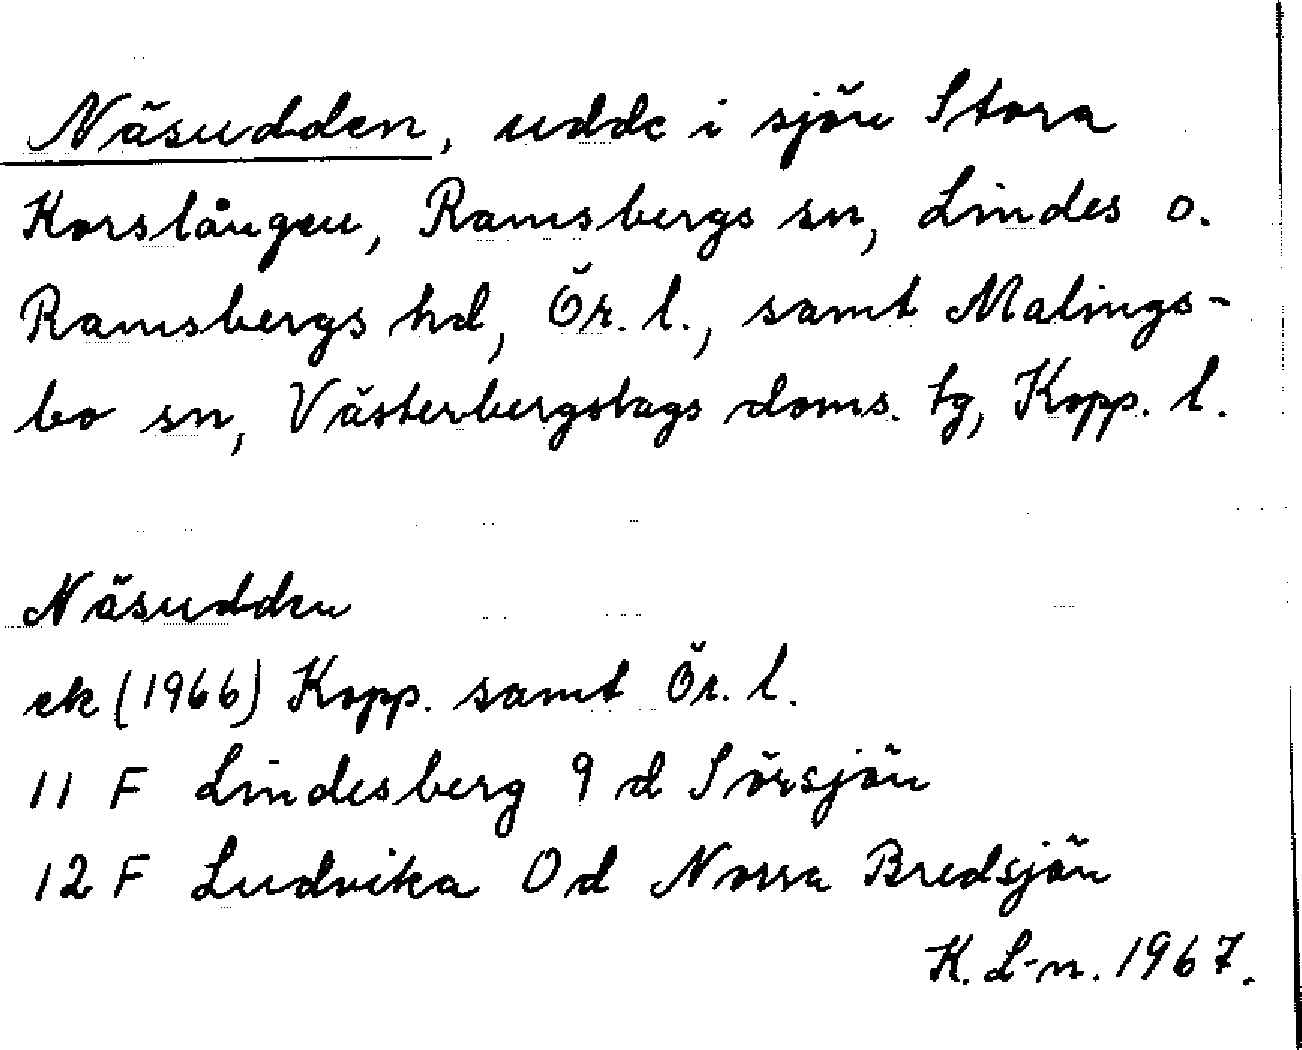 Näsudden, udde i sjön Stora
Korslången, Ramsbergs sn, Lindes o.
Ramsbergs hd, Ör. l., samt Malings-
bo sn, Västerbergslags doms. tg, Kopp. l.
Näsudden
ek (1966) Kopp. samt Ör. l.
11 F Lindesberg 9 d Sörsjön
12 F Ludvika 0 d Norra Bredsjön
K. L-n. 1967.